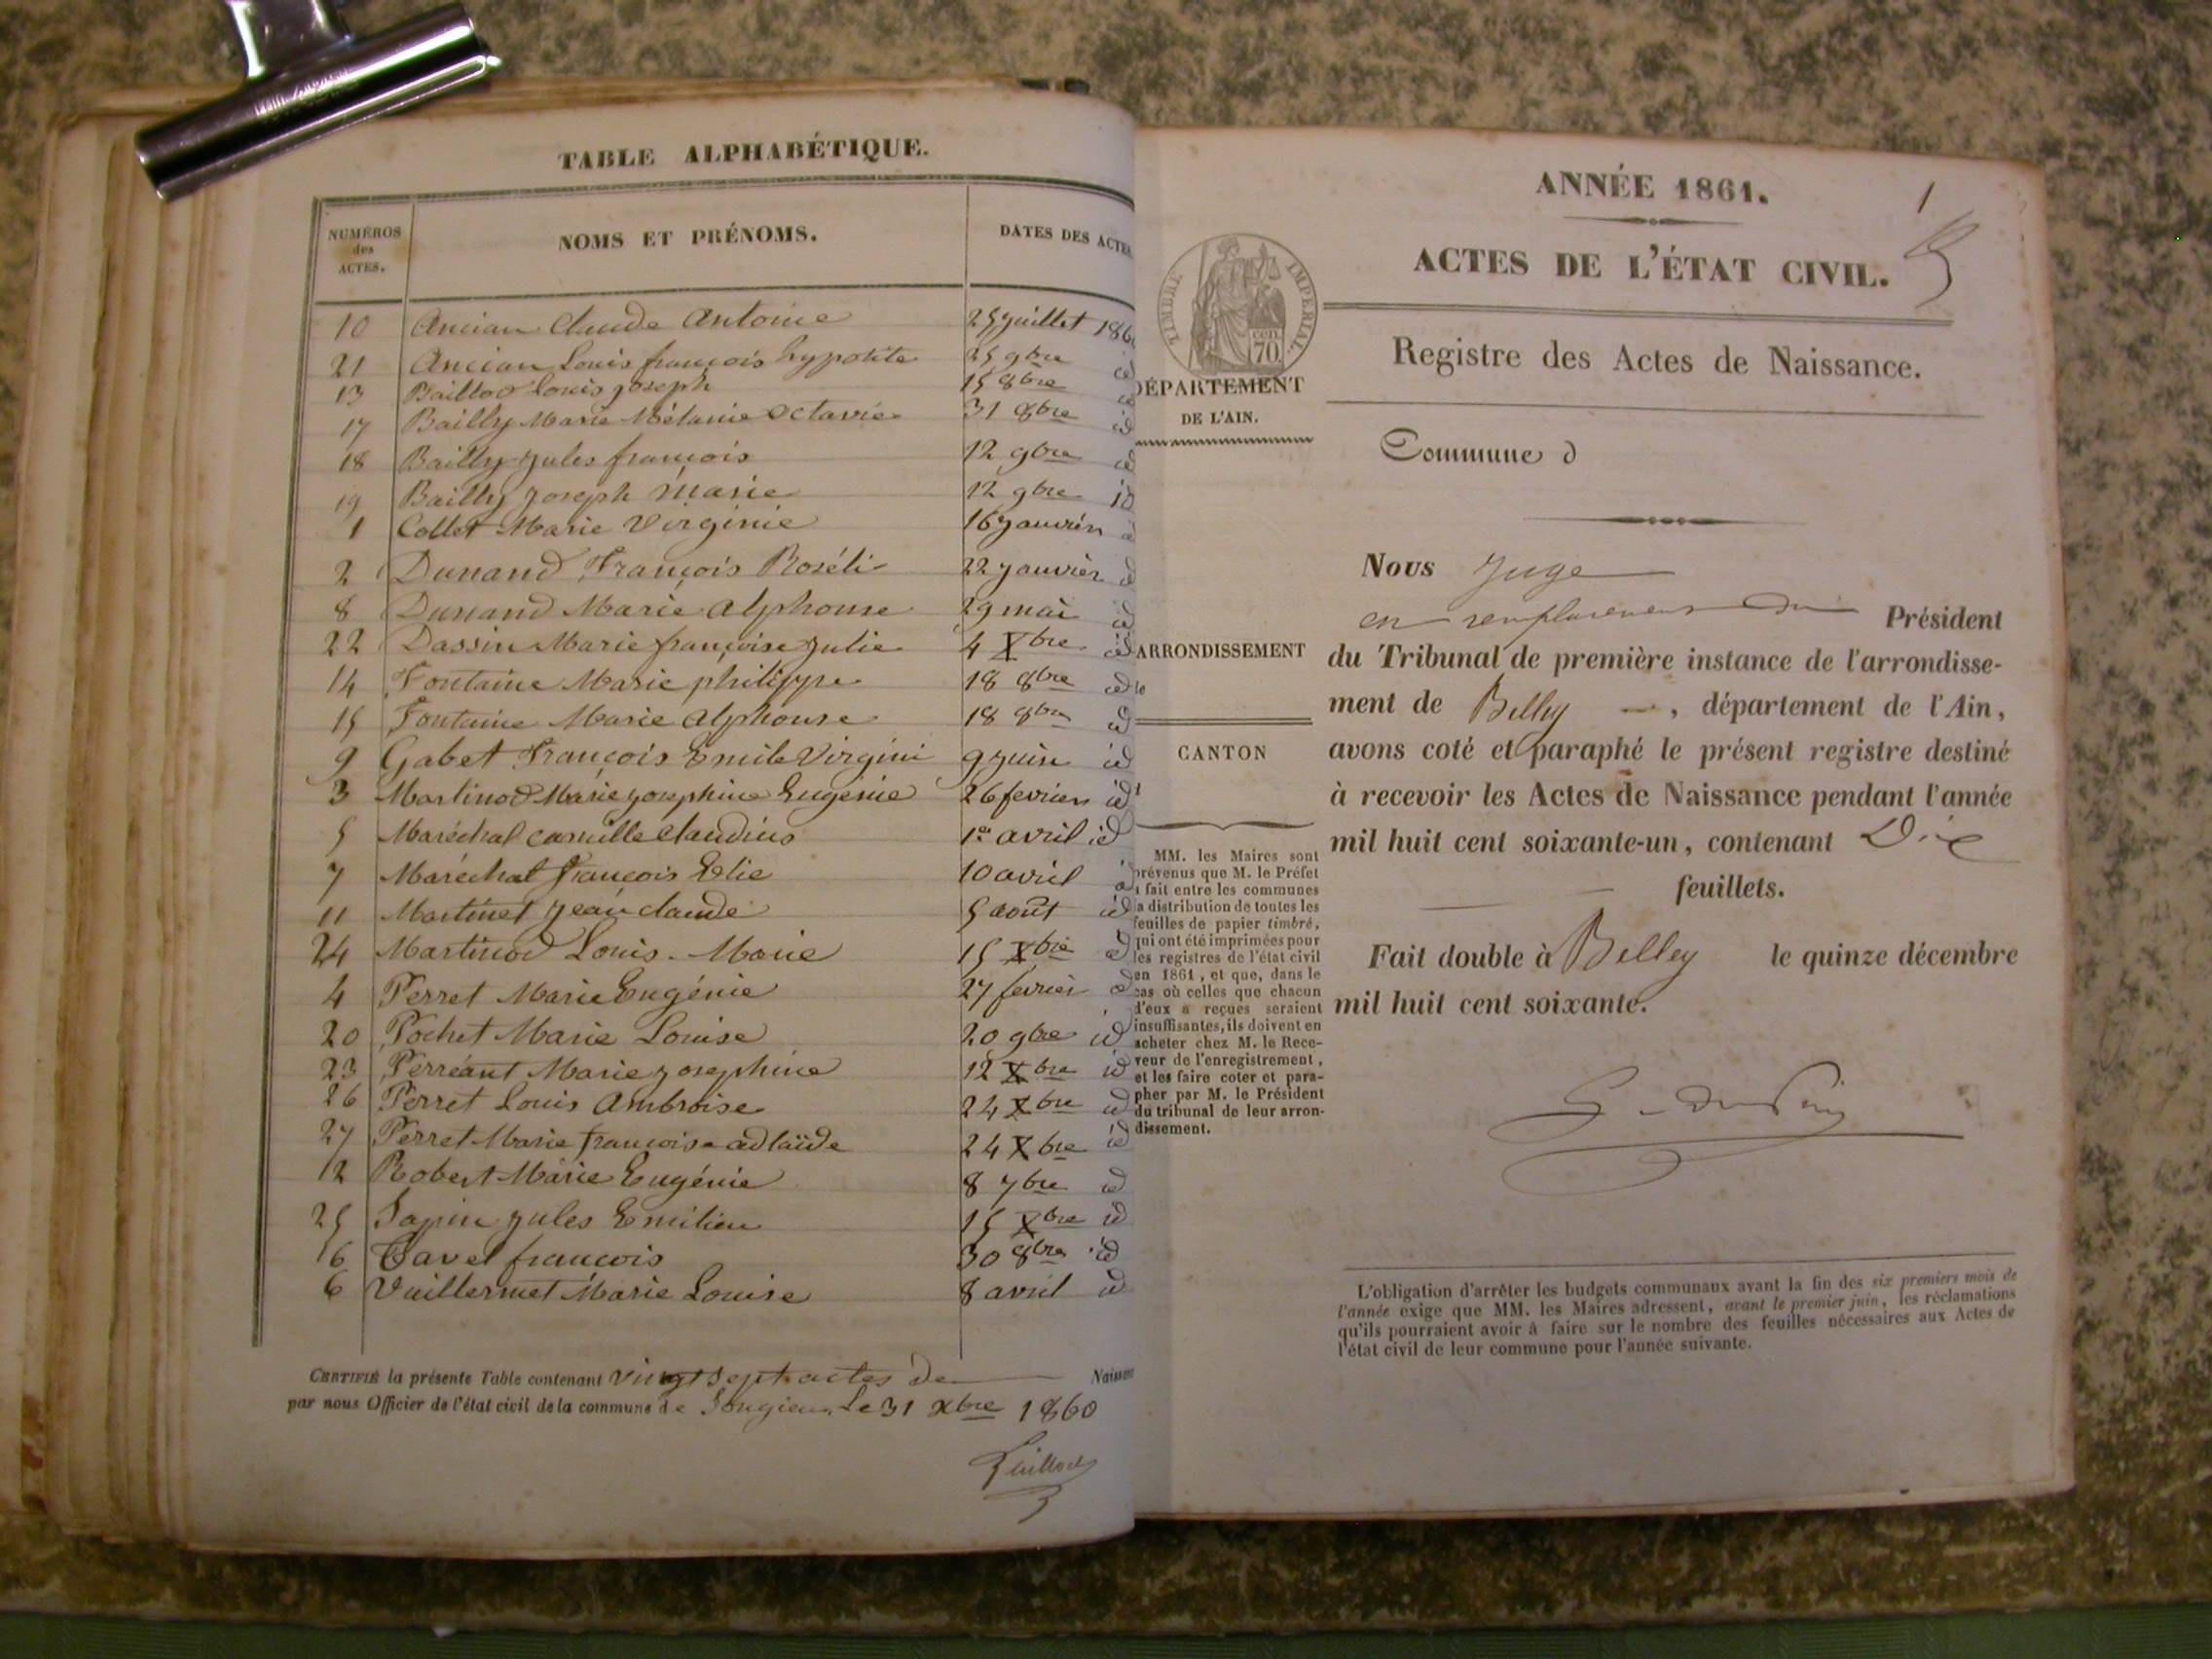 TABLE ALPHABÉTIQUE.
NUMÉROS des ACTES. NOMS ET PRÉNOMS. DATES DES ACTES
10 Ancian Claude Antoine 25 juillet 186
21 Ancian Louis françois hypolite 25 9bre id
13 Baillod Louis joseph 15 8bre id
17 Bailly Marie Mélanie Octavie 31 8bre id
18 Bailly jules françois 12 9bre id
19 Bailly joseph Marie 12 9bre id
1 Collet Marie Virginie 16 janvier id
2 Dunand François Roséli 22 janvier id
8 Dunand Marie Alphonse 29 mai id
22 Dassin Marie françoise julie 4 Xbre id
14 Fontaine Marie philippe 18 8bre id
15 Fontaine Marie Alphonse 18 8bre id
9 Gabet François Emile Virgini 9 juin id
3 Martinod Marie josephine Eugenie 26 fevrier id
5 Maréchal camille claudius 1er avril id
7 Maréchal françois Elie 10 avril id
11 Martinet jean claude 5 août id
24 Martinod Louis Marie 15 Xbre id
4 Perret Marie Eugénie 27 fevrier id
20 Pochet Marie Louise 20 9bre id
23 Perréant Marie josephine 12 Xbre id
26 Perret Louis Ambroise 24 Xbre id
27 Perret Marie françoise adlaïde 24 Xbre id
12 Robert Marie Eugénie 8 7bre id
25 Sapin jules Emilien 15 Xbre id
16 Tavel françois 30 8bre id
6 Vuillermet Marie Louise 8 avril id
CERTIFIÉ la présente Table contenant vingt sept actes de Naissan
par nous Officier de l'état civil de la commune de Songieu, Le 31 Xbre 1860
1
ANNÉE 1861.
ACTES DE L'ÉTAT CIVIL.
TIMBRE IMPERIAL
CEN. 70
Registre des Actes de Naissance.
DÉPARTEMENT
DE L'AIN.
Commune d
Nous Juge
en remplacement du Président
du Tribunal de première instance de l'arrondisse-
ment de Belley, département de l'Ain,
avons coté et paraphé le présent registre destiné
à recevoir les Actes de Naissance pendant l'année
mil huit cent soixante-un, contenant Dix
feuillets.
Fait double à Belley le quinze décembre
mil huit cent soixante.
ARRONDISSEMENT
CANTON
MM. les Maires sont
prévenus que M. le Préfet
a fait entre les communes
la distribution de toutes les
feuilles de papier timbré,
qui ont été imprimées pour
les registres de l'état civil
en 1861, et que, dans le
cas où celles que chacun
d'eux a reçues seraient
insuffisantes, ils doivent en
acheter chez M. le Rece-
veur de l'enregistrement,
et les faire coter et para-
pher par M. le Président
du tribunal de leur arron-
dissement.
L'obligation d'arrêter les budgets communaux avant la fin des six premiers mois de
l'année exige que MM. les Maires adressent, avant le premier juin, les réclamations
qu'ils pourraient avoir à faire sur le nombre des feuilles nécessaires aux Actes de
l'état civil de leur commune pour l'année suivante.